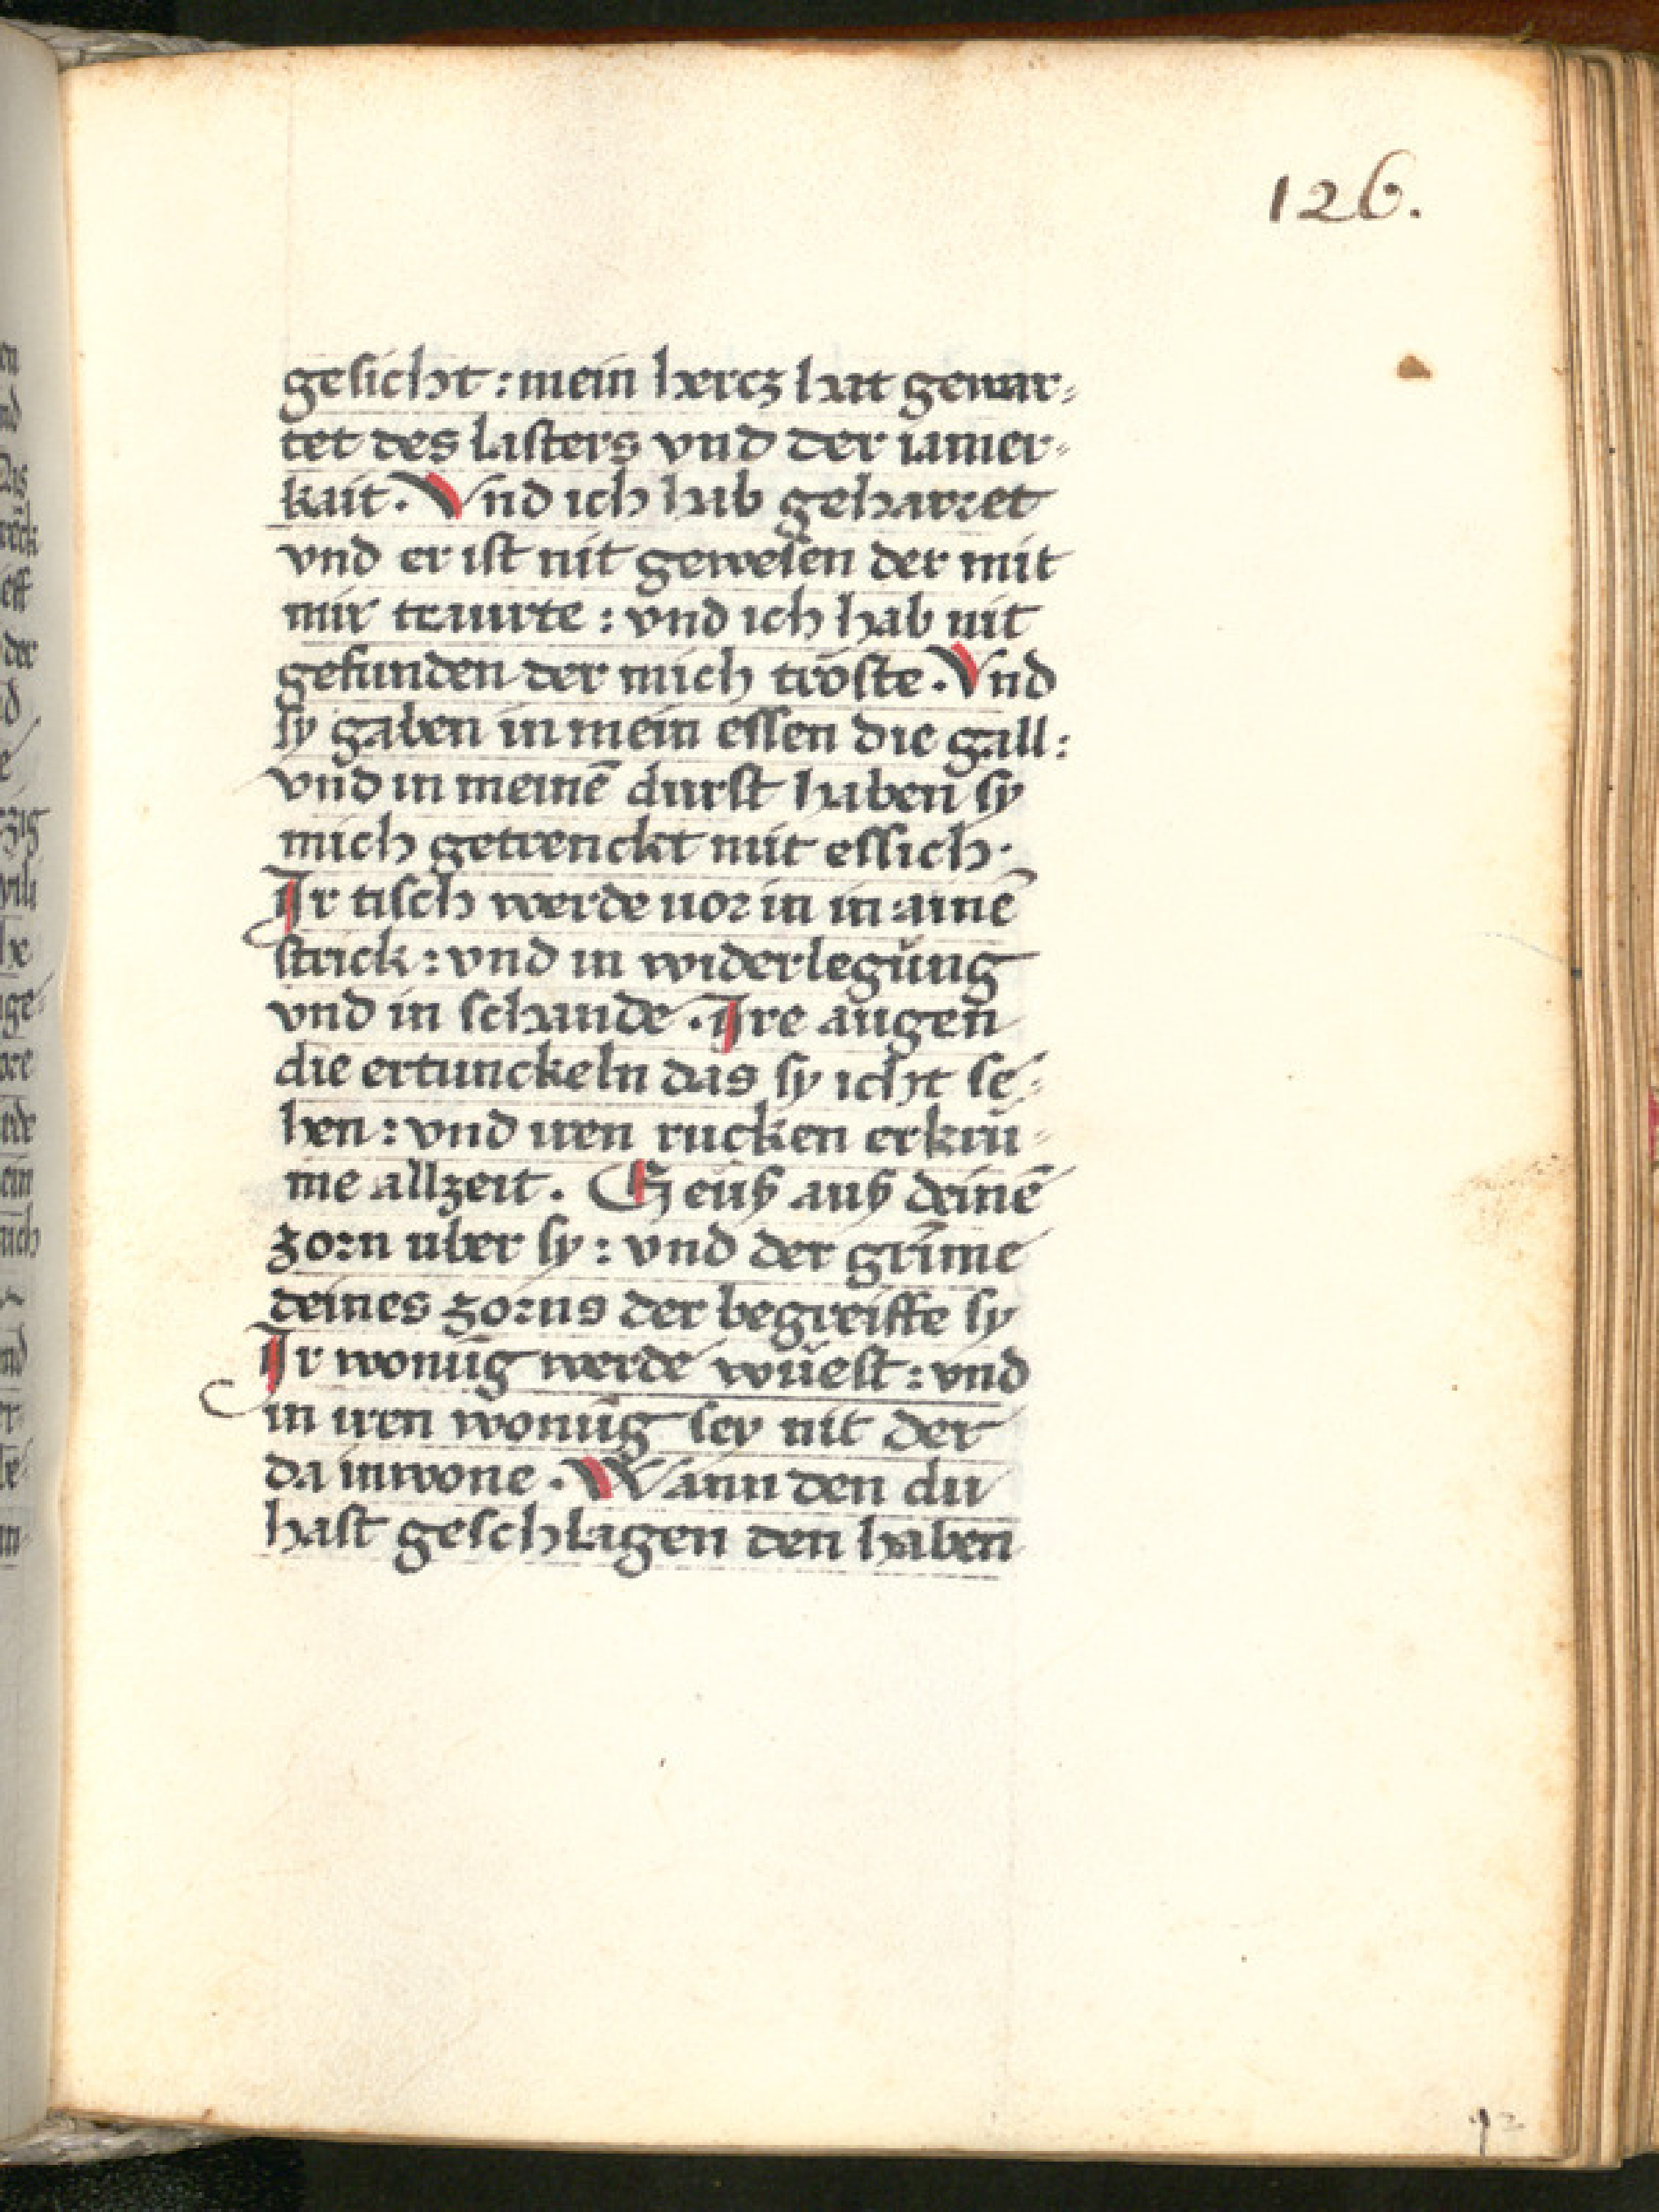 126.
gesicht : mein hercz hat gewar⸗
tet des lasters vnd der iamer⸗
kait · Vnd ich hab geharret
vnd er ist nit gewesen der mit
mir traurte : vnd ich hab nit
gefunden der mich tröste · Vnd
sy gaben in mein essen die gall :
vnd in meinē durst haben sy
mich getrenckt mit essich ·
Ir tisch werde uor in in ainē
strick : vnd in widerlegŭng
vnd in schande · Ire augen
die ertunckeln das sy icht se⸗
hen : vnd iren rucken erkrū⸗
me allzeit . Geŭß auß deinē
zorn uber sy : vnd der grīme
deines zorns der begreiffe sy
Ir wonūg werde wŭest : vnd
in iren wonūg sey nit der
da inwone · Wann den du
hast geschlagen den haben
92